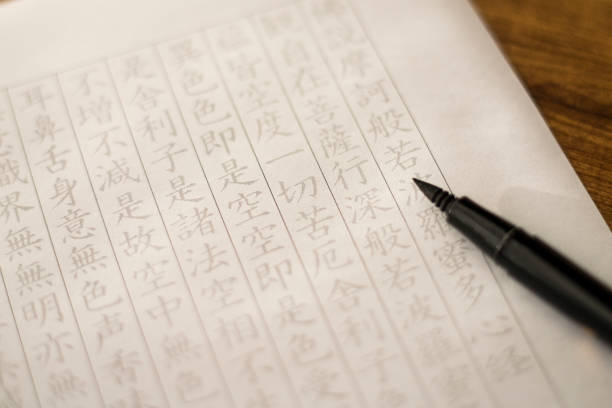 説摩訶般若波羅蜜多心経
観自在菩薩行深般若波羅蜜
蘊皆空度一切苦厄舎利子色
異色色即是空空即是色受
是舎利子是諸法空相不
不増不減是故空中無色
耳鼻舌身意無色声香味
識界無無明亦無